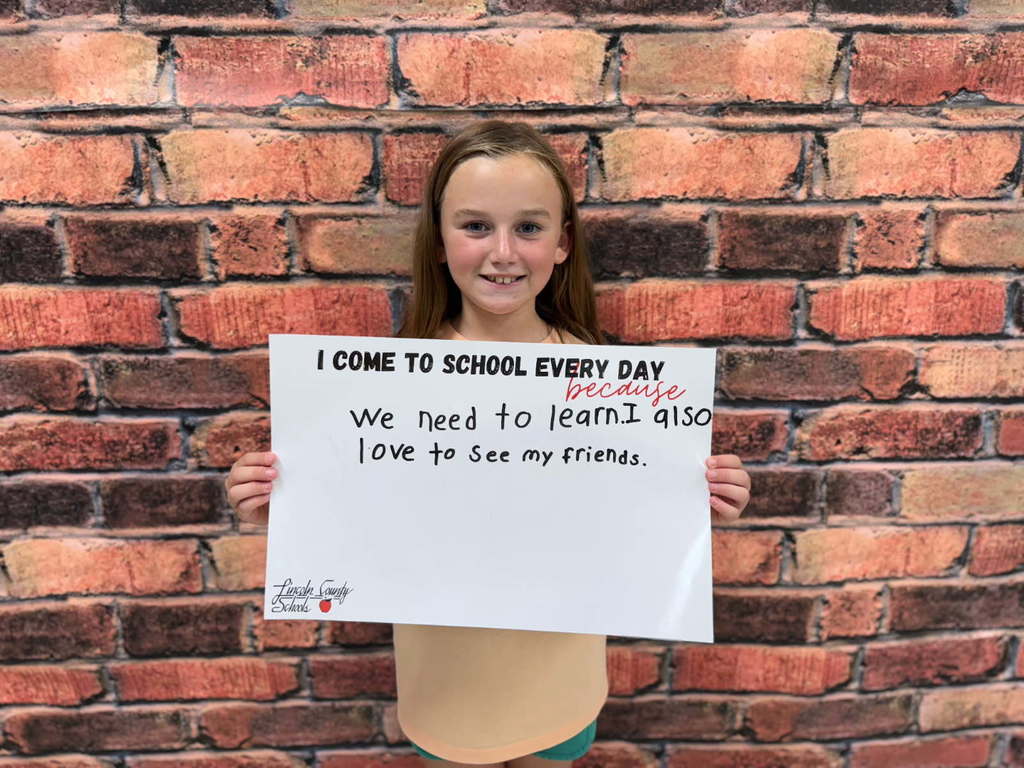 I COME TO SCHOOL EVERY DAY
because
We need to learn. I also
love to see my friends.
Lincoln County
Schools